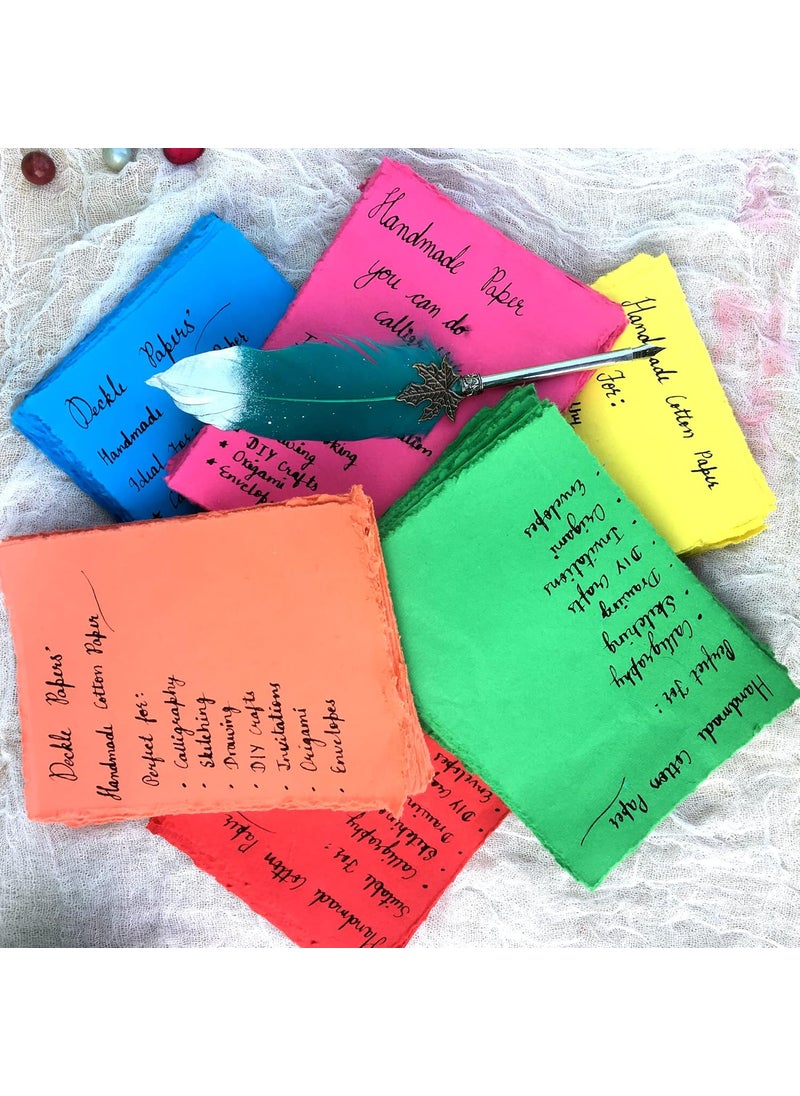 Deckle Papers'
Handmade Paper
Ideal For:
Handmade Paper
you can do
DIY Crafts
Origami
Handmade Cotton Paper
For:
Deckle Papers'
Handmade Cotton Paper
Perfect for:
• Calligraphy
• Sketching
• Drawing
• DIY Crafts
• Invitations
• Origami
• Envelopes
Handmade Cotton Paper
Perfect For:
• Calligraphy
• Sketching
• Drawing
• DIY Crafts
• Invitations
• Origami
• Envelopes
Handmade Cotton Paper
Suitable For:
• Calligraphy
• Sketching
• Drawing
• DIY
• Envelopes